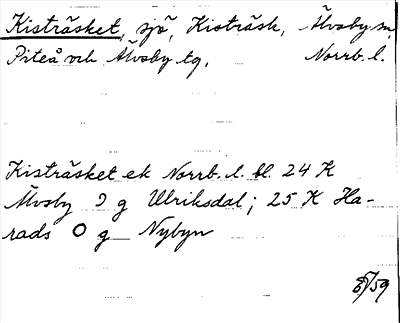 Kisträsket, sjö, Kisträsk, Älvsby sn,
Piteå och Älvsby tg, Norrb. l.
Kisträsket ek Norrb. l. bl. 24 K
Älvsby 9 g Ulriksdal; 25 K Ha-
rads 0 g Nybyn
/59